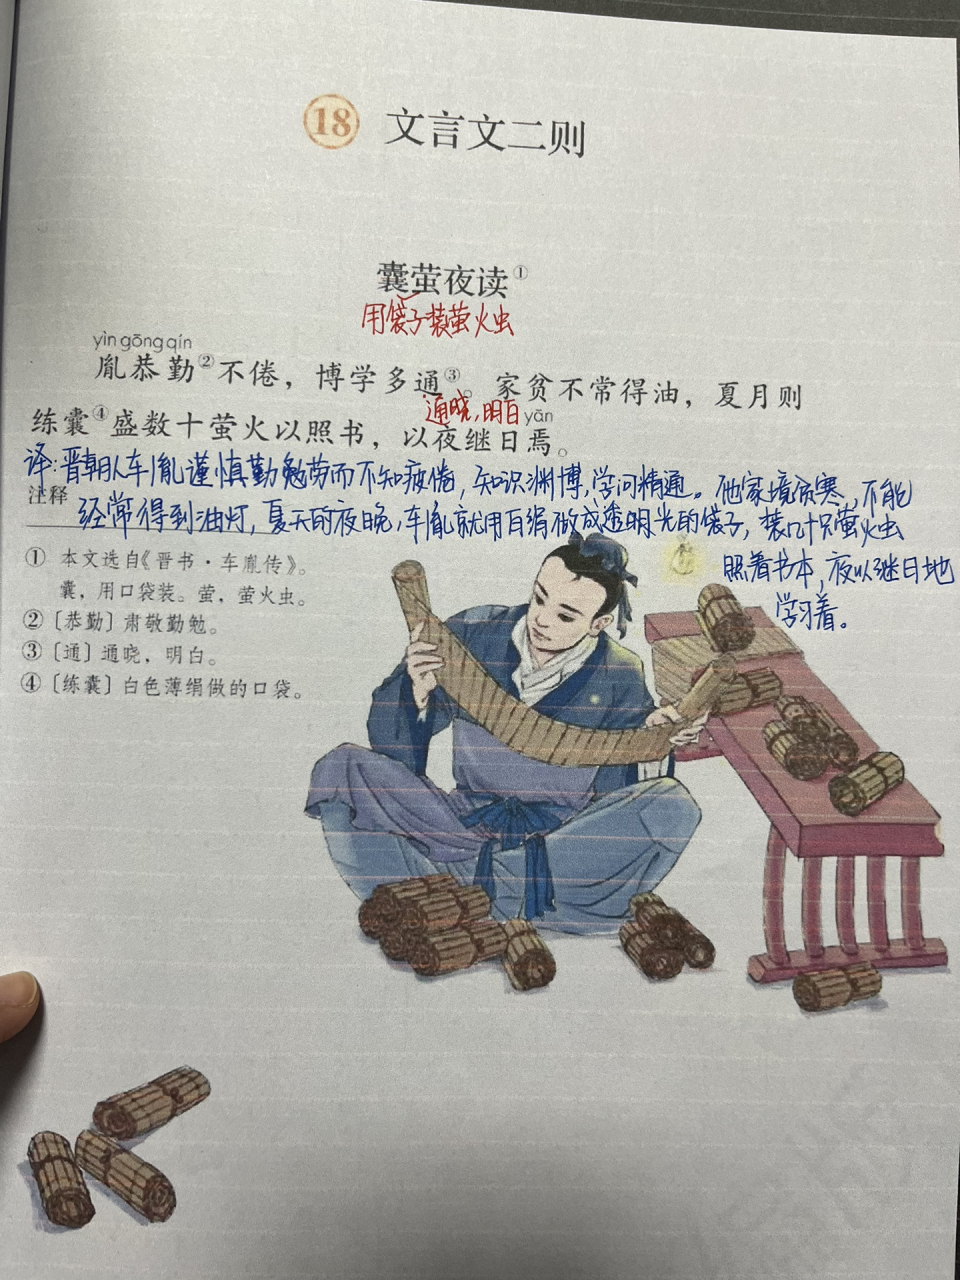 18 文言文二则
囊萤夜读①
用袋子装萤火虫
yìn gōng qín
胤恭勤②不倦，博学多通③。家贫不常得油，夏月则
通晓，明白
yān
练囊④盛数十萤火以照书，以夜继日焉。
译：晋朝人车胤谨慎勤勉劳而不知疲倦，知识渊博，学问精通。他家境贫寒，不能
注释
经常得到油灯，夏天的夜晚，车胤就用白绢做成透明光的袋子，装几十只萤火虫
照着书本，夜以继日地
学习着。
① 本文选自《晋书·车胤传》。
囊，用口袋装。萤，萤火虫。
②〔恭勤〕肃敬勤勉。
③〔通〕通晓，明白。
④〔练囊〕白色薄绢做的口袋。